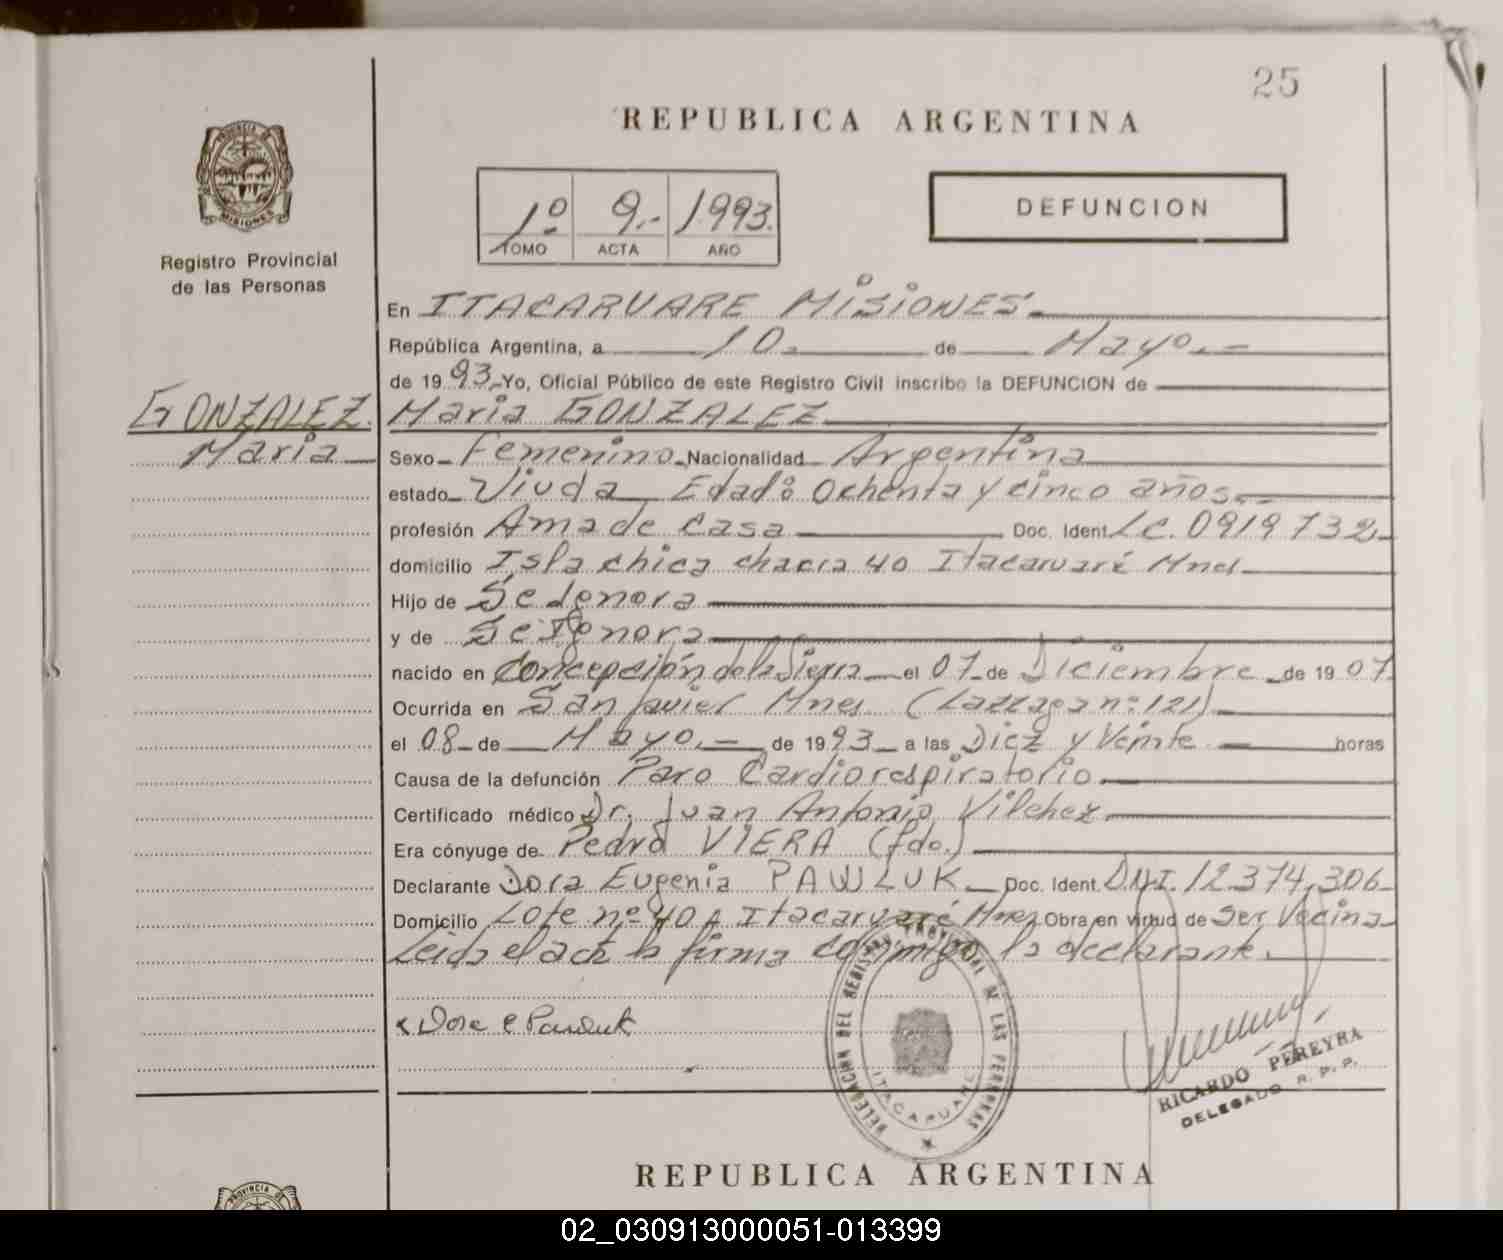 25
REPUBLICA ARGENTINA
PROVINCIA DE
MISIONES
1º 9.- 1993.
TOMO ACTA AÑO
DEFUNCION
Registro Provincial
de las Personas
En ITACARUARE MISIONES.
República Argentina, a 10. de Mayo.-
de 1993. Yo, Oficial Público de este Registro Civil inscribo la DEFUNCION de
GONZALEZ. Maria GONZALEZ
Maria Sexo Femenino Nacionalidad Argentina
estado Viuda Edad: Ochenta y cinco años.-
profesión Ama de Casa Doc. Ident. LC. 0919732
domicilio Isla chica chacra 40 Itacaruaré Mnes
Hijo de Se Ignora
y de Se Ignora
nacido en Concepción de la Sierra el 07 de Diciembre de 1907
Ocurrida en San Javier Mnes. nº 121)
el 08 de Mayo.- de 1993 a las Diez y Veinte horas
Causa de la defunción Paro Cardiorespiratorio
Certificado médico Dr. Juan Antonio Vilchez
Era cónyuge de Pedro VIERA (fdo.)
Declarante Dora Eugenia PAWLUK Doc. Ident. D.N.I. 12.374.306
Domicilio Lote nº 40 A Itacaruaré Mnes Obra en virtud de Ser Vecina
Leida el acta la firma conmigo la declarante.
x Dora E Pawluk
DELEGACION DEL REGISTRO PROVINCIAL DE LAS PERSONAS
ITACARUARE
RICARDO PEREYRA
DELEGADO R. P. P.
REPUBLICA ARGENTINA
PROVINCIA DE
02_030913000051-013399